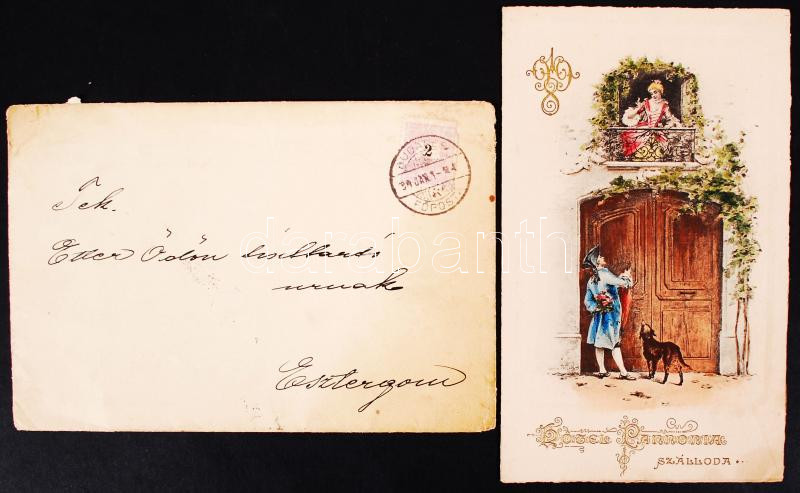 Tek.
Etter Ödön
urnak
Esztergom
2
BUDAPEST
FŐPOSTA
HOTEL PANNONIA
SZÁLLODA
darabanth